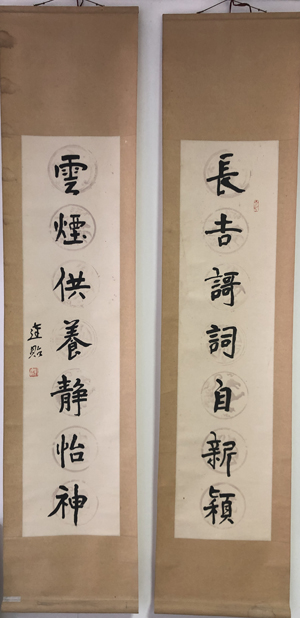 長吉謌詞自新穎
雲煙供養静怡神
貽